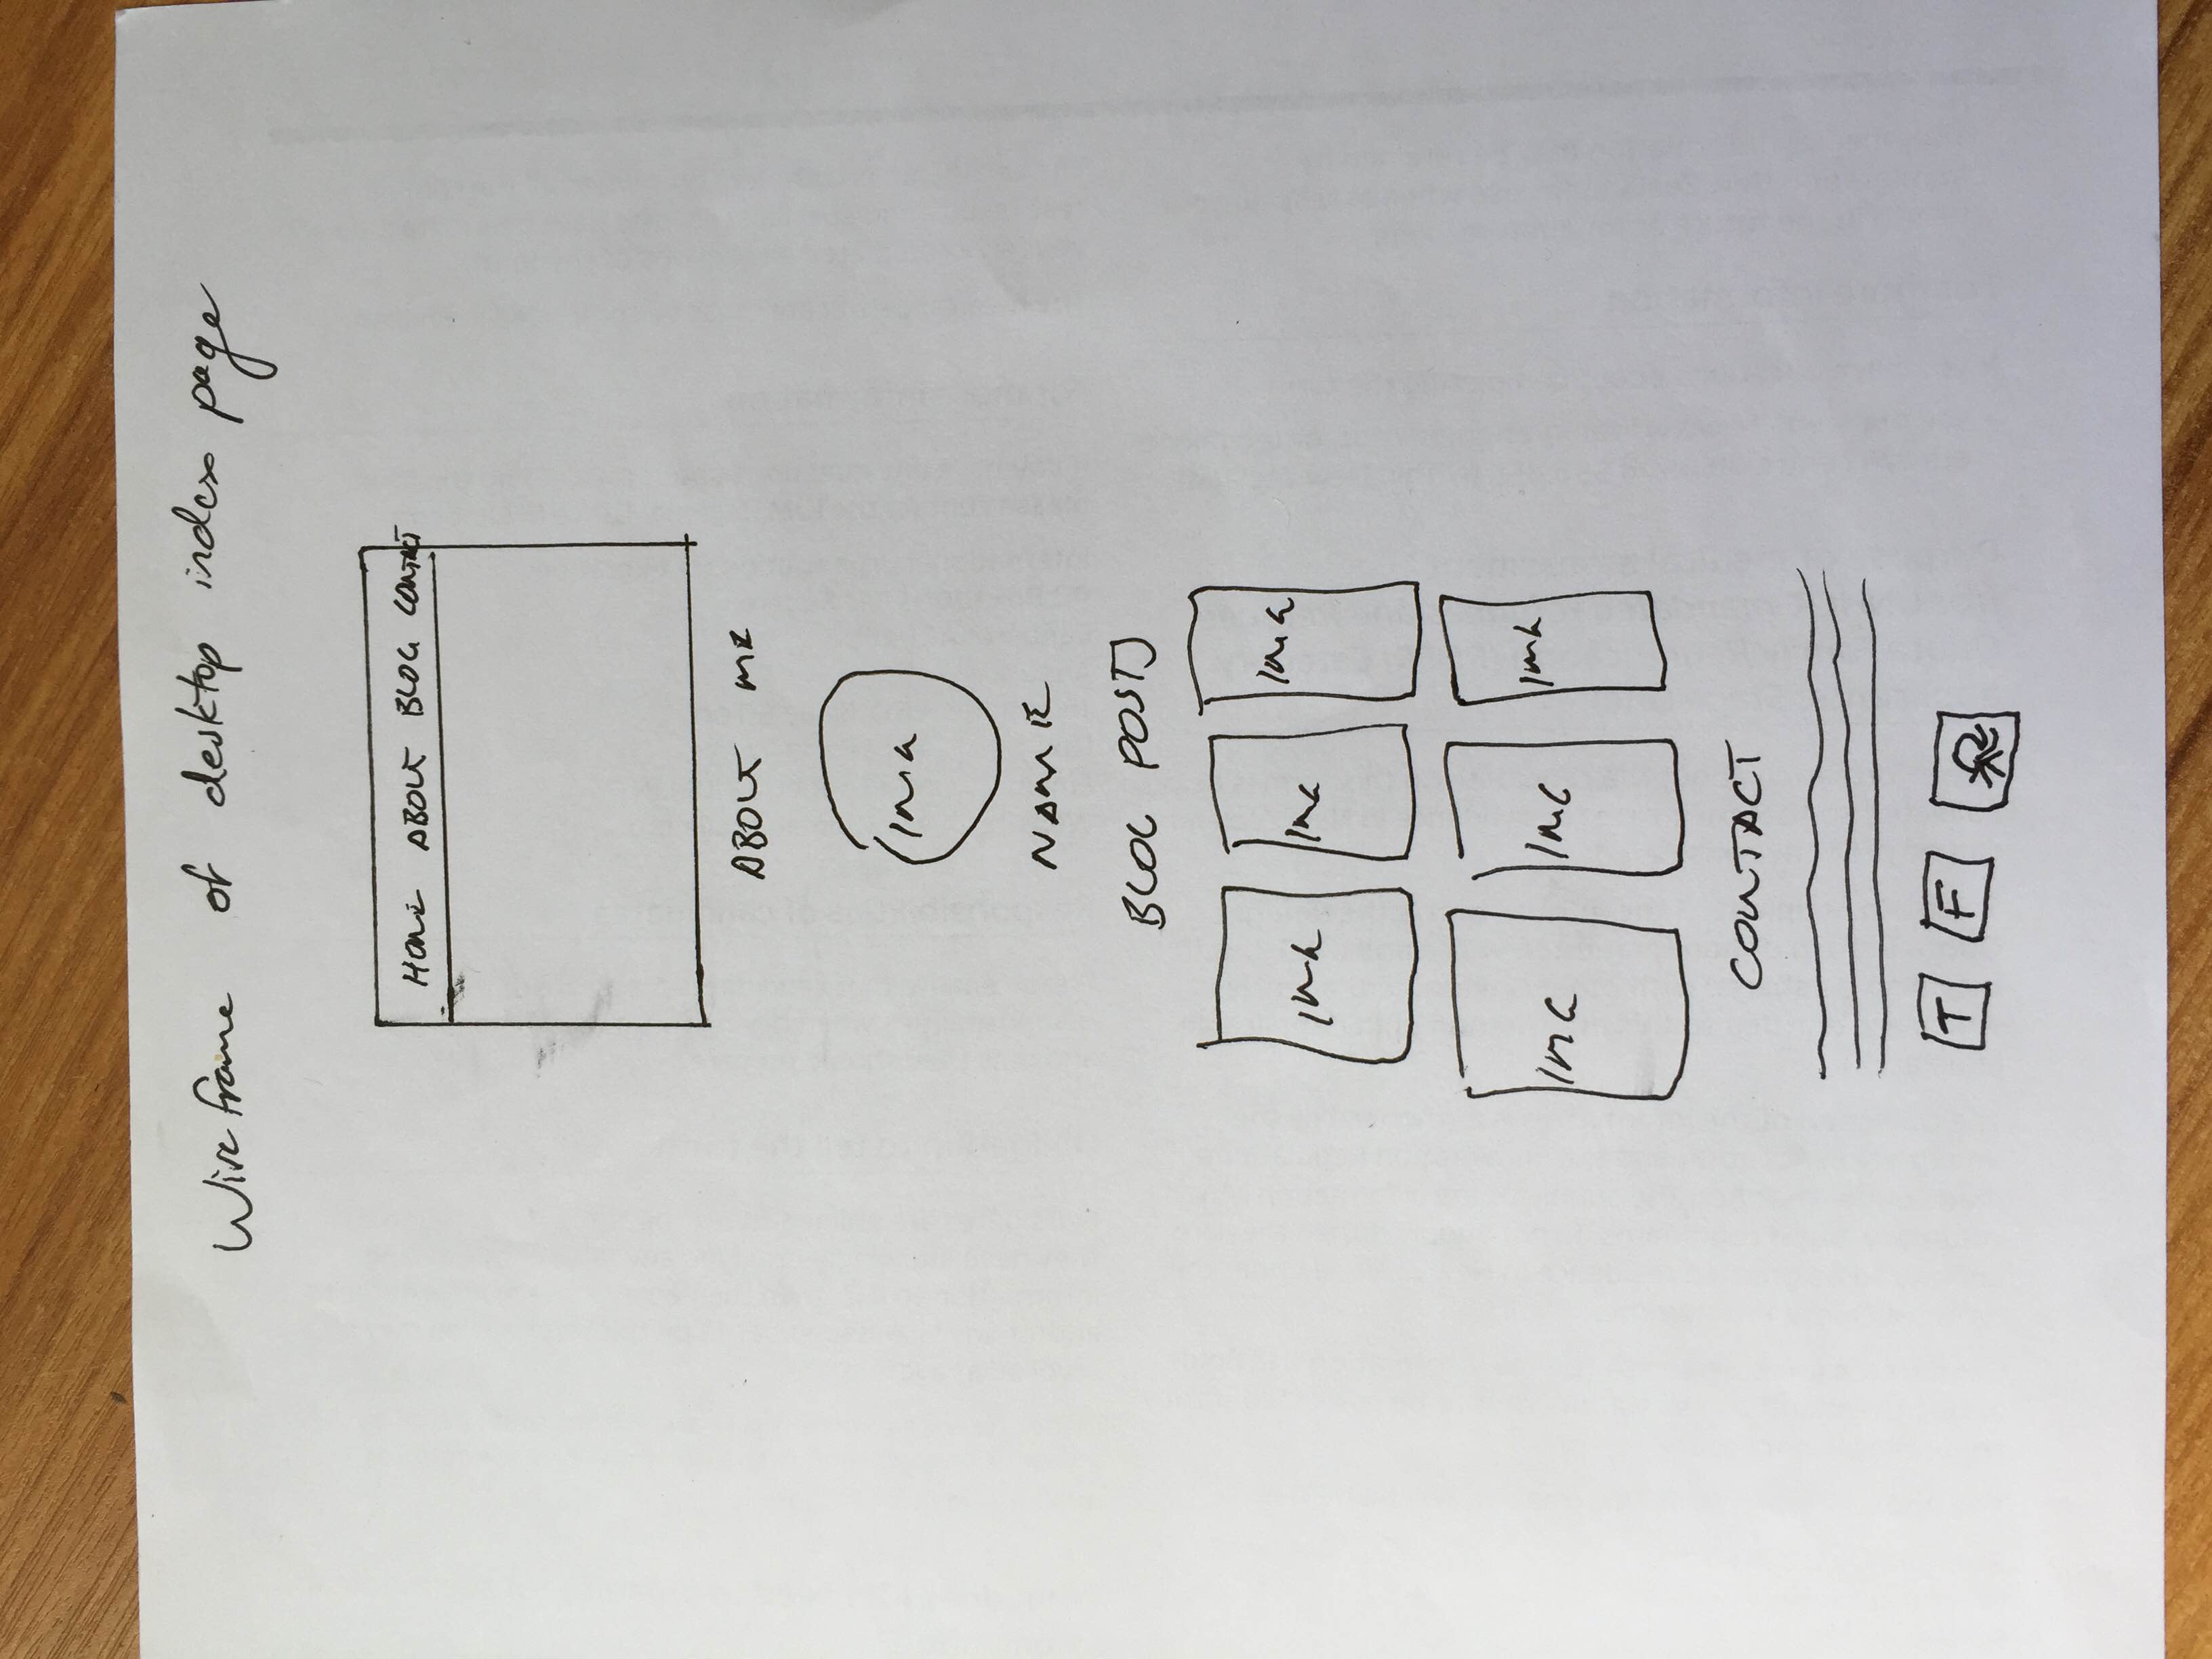 Wireframe of desktop index page
HOME ABOUT BLOG CONTACT
ABOUT ME
IMG
NAME
BLOG POSTS
IMG IMG IMG
IMG IMG IMG
CONTACT
T F